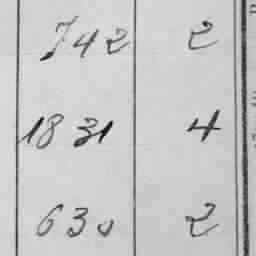 742 2
1831 4
630 2